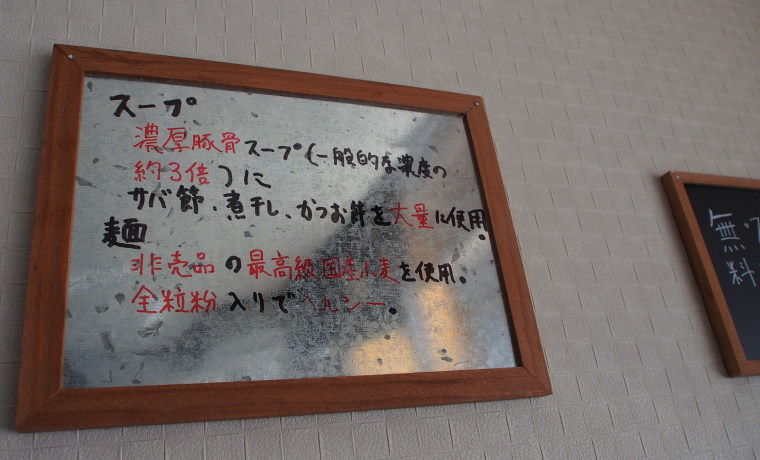 スープ
濃厚豚骨スープ(一般的な濃度の
約3倍)に
サバ節、煮干し、かつお節を大量に使用。
麺
非売品の最高級国産小麦を使用。
全粒粉入りでヘルシー。
無
料